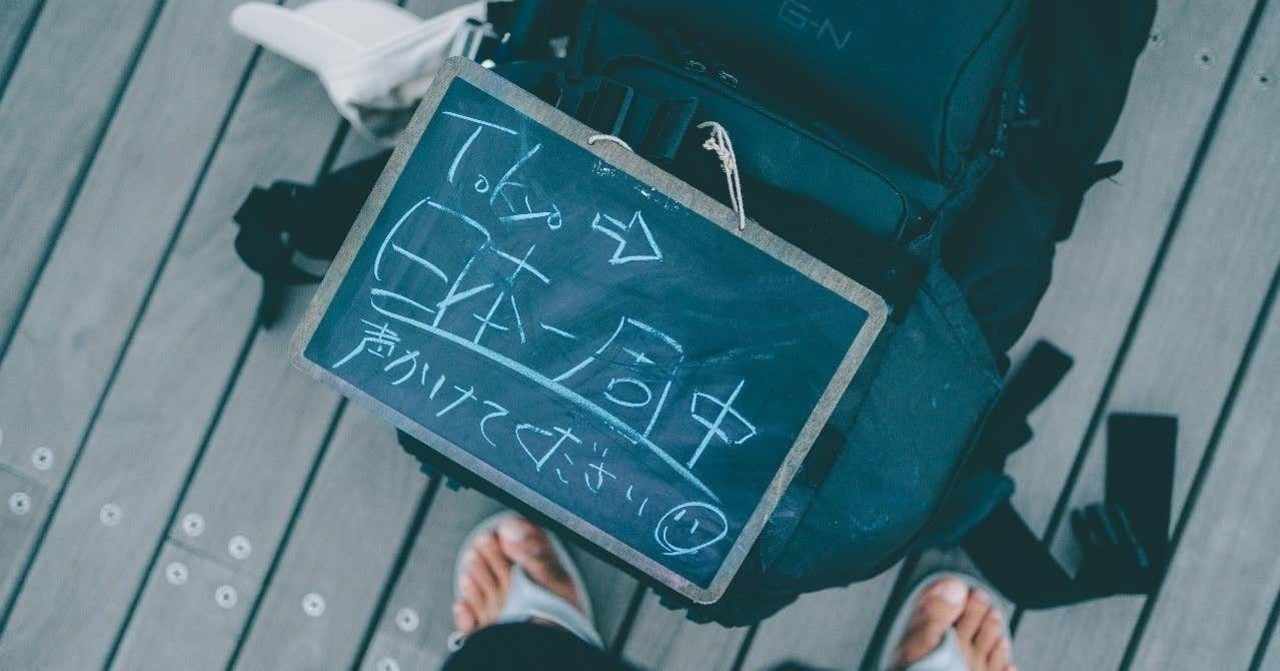 G-N
Tokyo ⇨
日本一周中
声かけてください